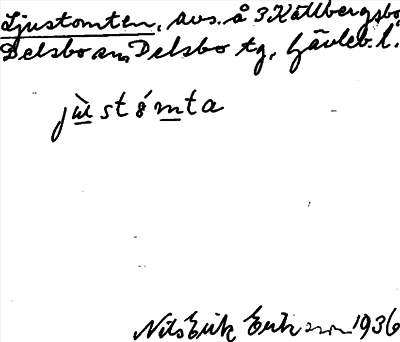 Ljustomten, avs. å 3 Källbergsbo,
Delsbo an, Delsbo tg, Gävleb. l.
jùstómta
Nils Erik Eriksson 1936